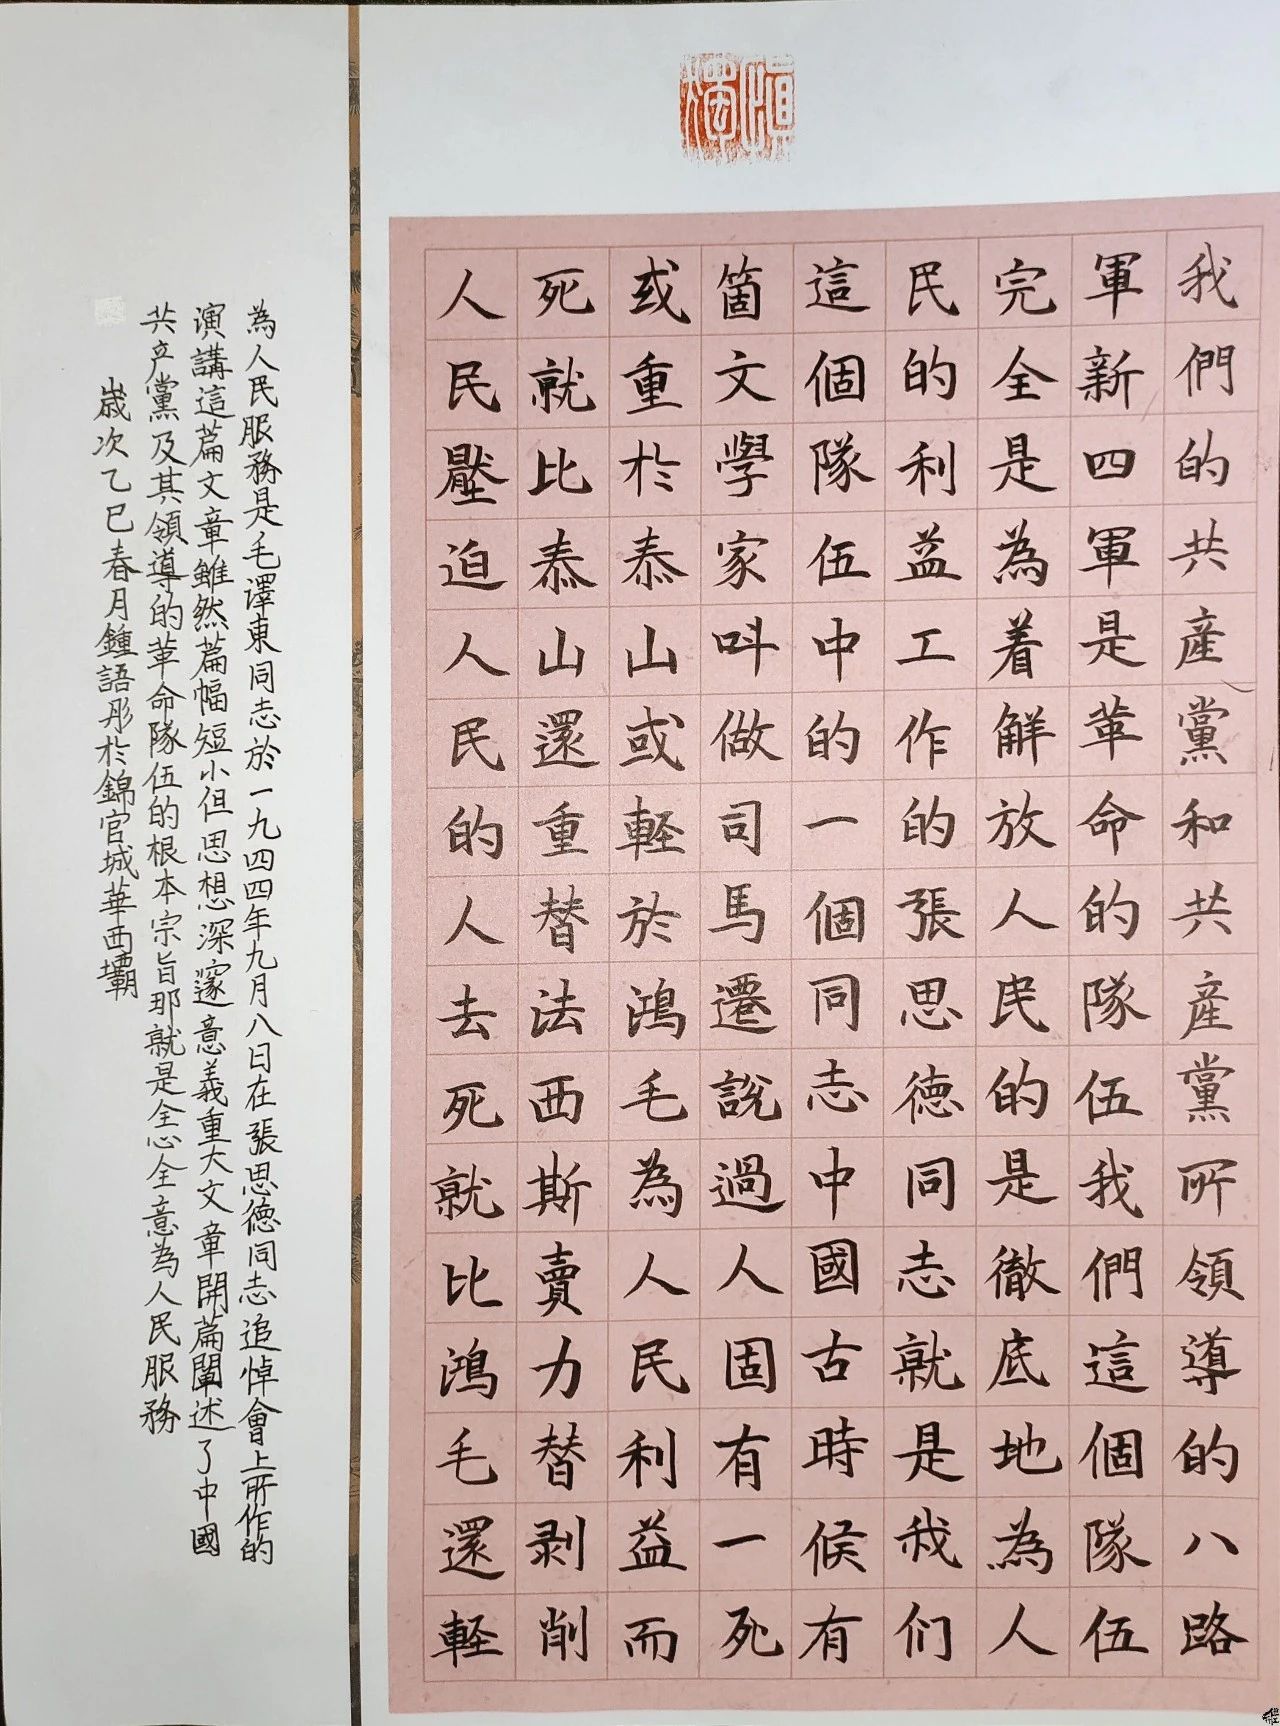 慎獨
我們的共産黨和共産黨所領導的八路
軍新四軍是革命的隊伍我們這個隊伍
完全是為着解放人民的是徹底地為人
民的利益工作的張思德同志就是我们
這個隊伍中的一個同志中國古時候有
箇文學家叫做司馬遷說過人固有一死
或重於泰山或輕於鴻毛為人民利益而
死就比泰山還重替法西斯賣力替剥削
人民壓迫人民的人去死就比鴻毛還軽
為人民服務是毛澤東同志於一九四四年九月八日在張思德同志追悼會上所作的
演講這篇文章雖然篇幅短小但思想深邃意義重大文章開篇闡述了中國
共产黨及其領導的革命隊伍的根本宗旨那就是全心全意為人民服務
歲次乙巳春月鍾語彤於錦官城華西壩